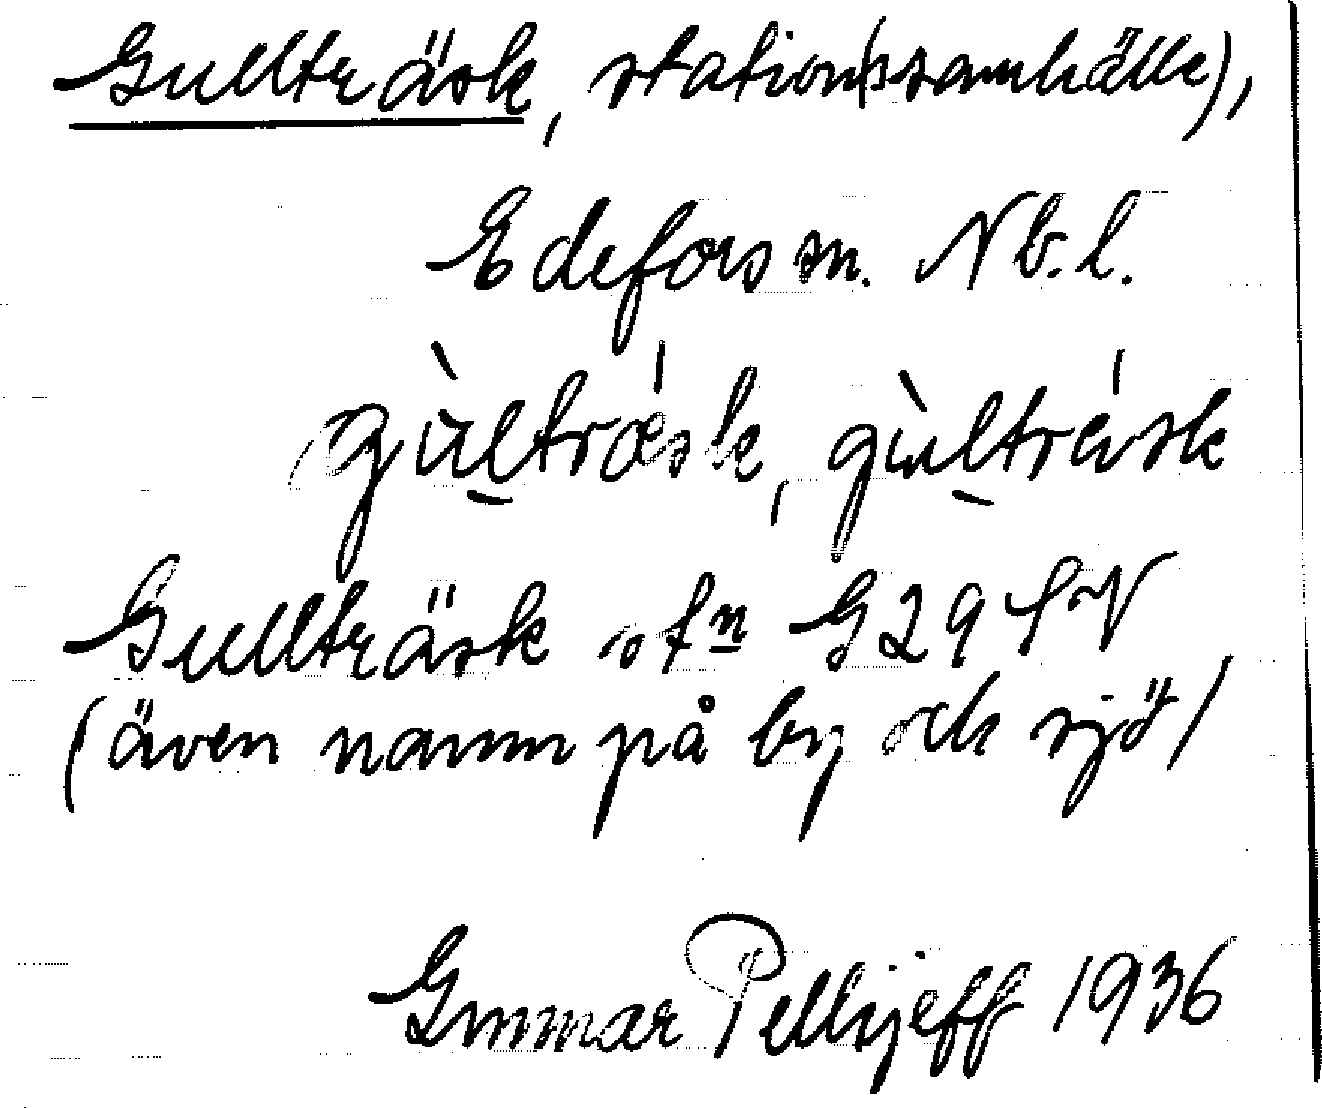 Gullträsk, station(ssamhälle),
Edefors sn. Nb.l.
gùltrǽsk, gùlträsk
Gullträsk stn G29 SV
(även namn på by och sjö)
Gunnar Pellijeff 1936